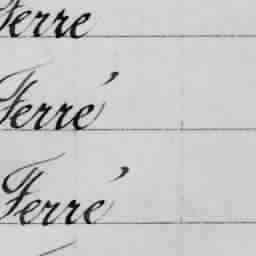 Ferre
Ferré
Ferré